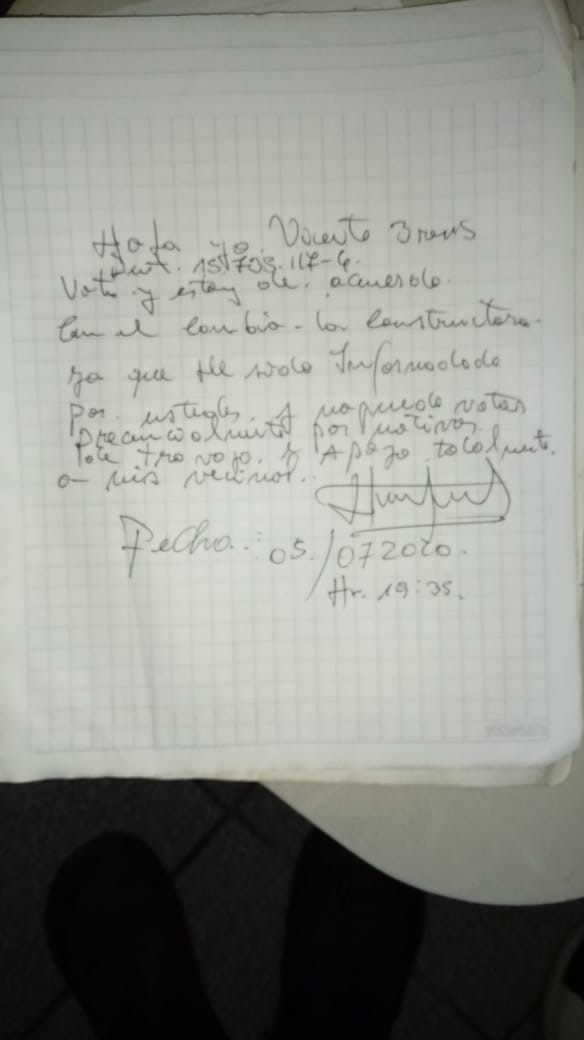 Hafa yo. Vicente
Rut. 15.709.117-4.
Voto y estoy de. acuerdo.
Con el cambio. la constructora.
ya que He sido Informadodo
por. ustedes. y nopuedo votar
precencialmente por motivos
de travajo. y Apoyo totalmente.
a mis vecinos..
Fecha..: 05./072020.
Hr. 19:35.